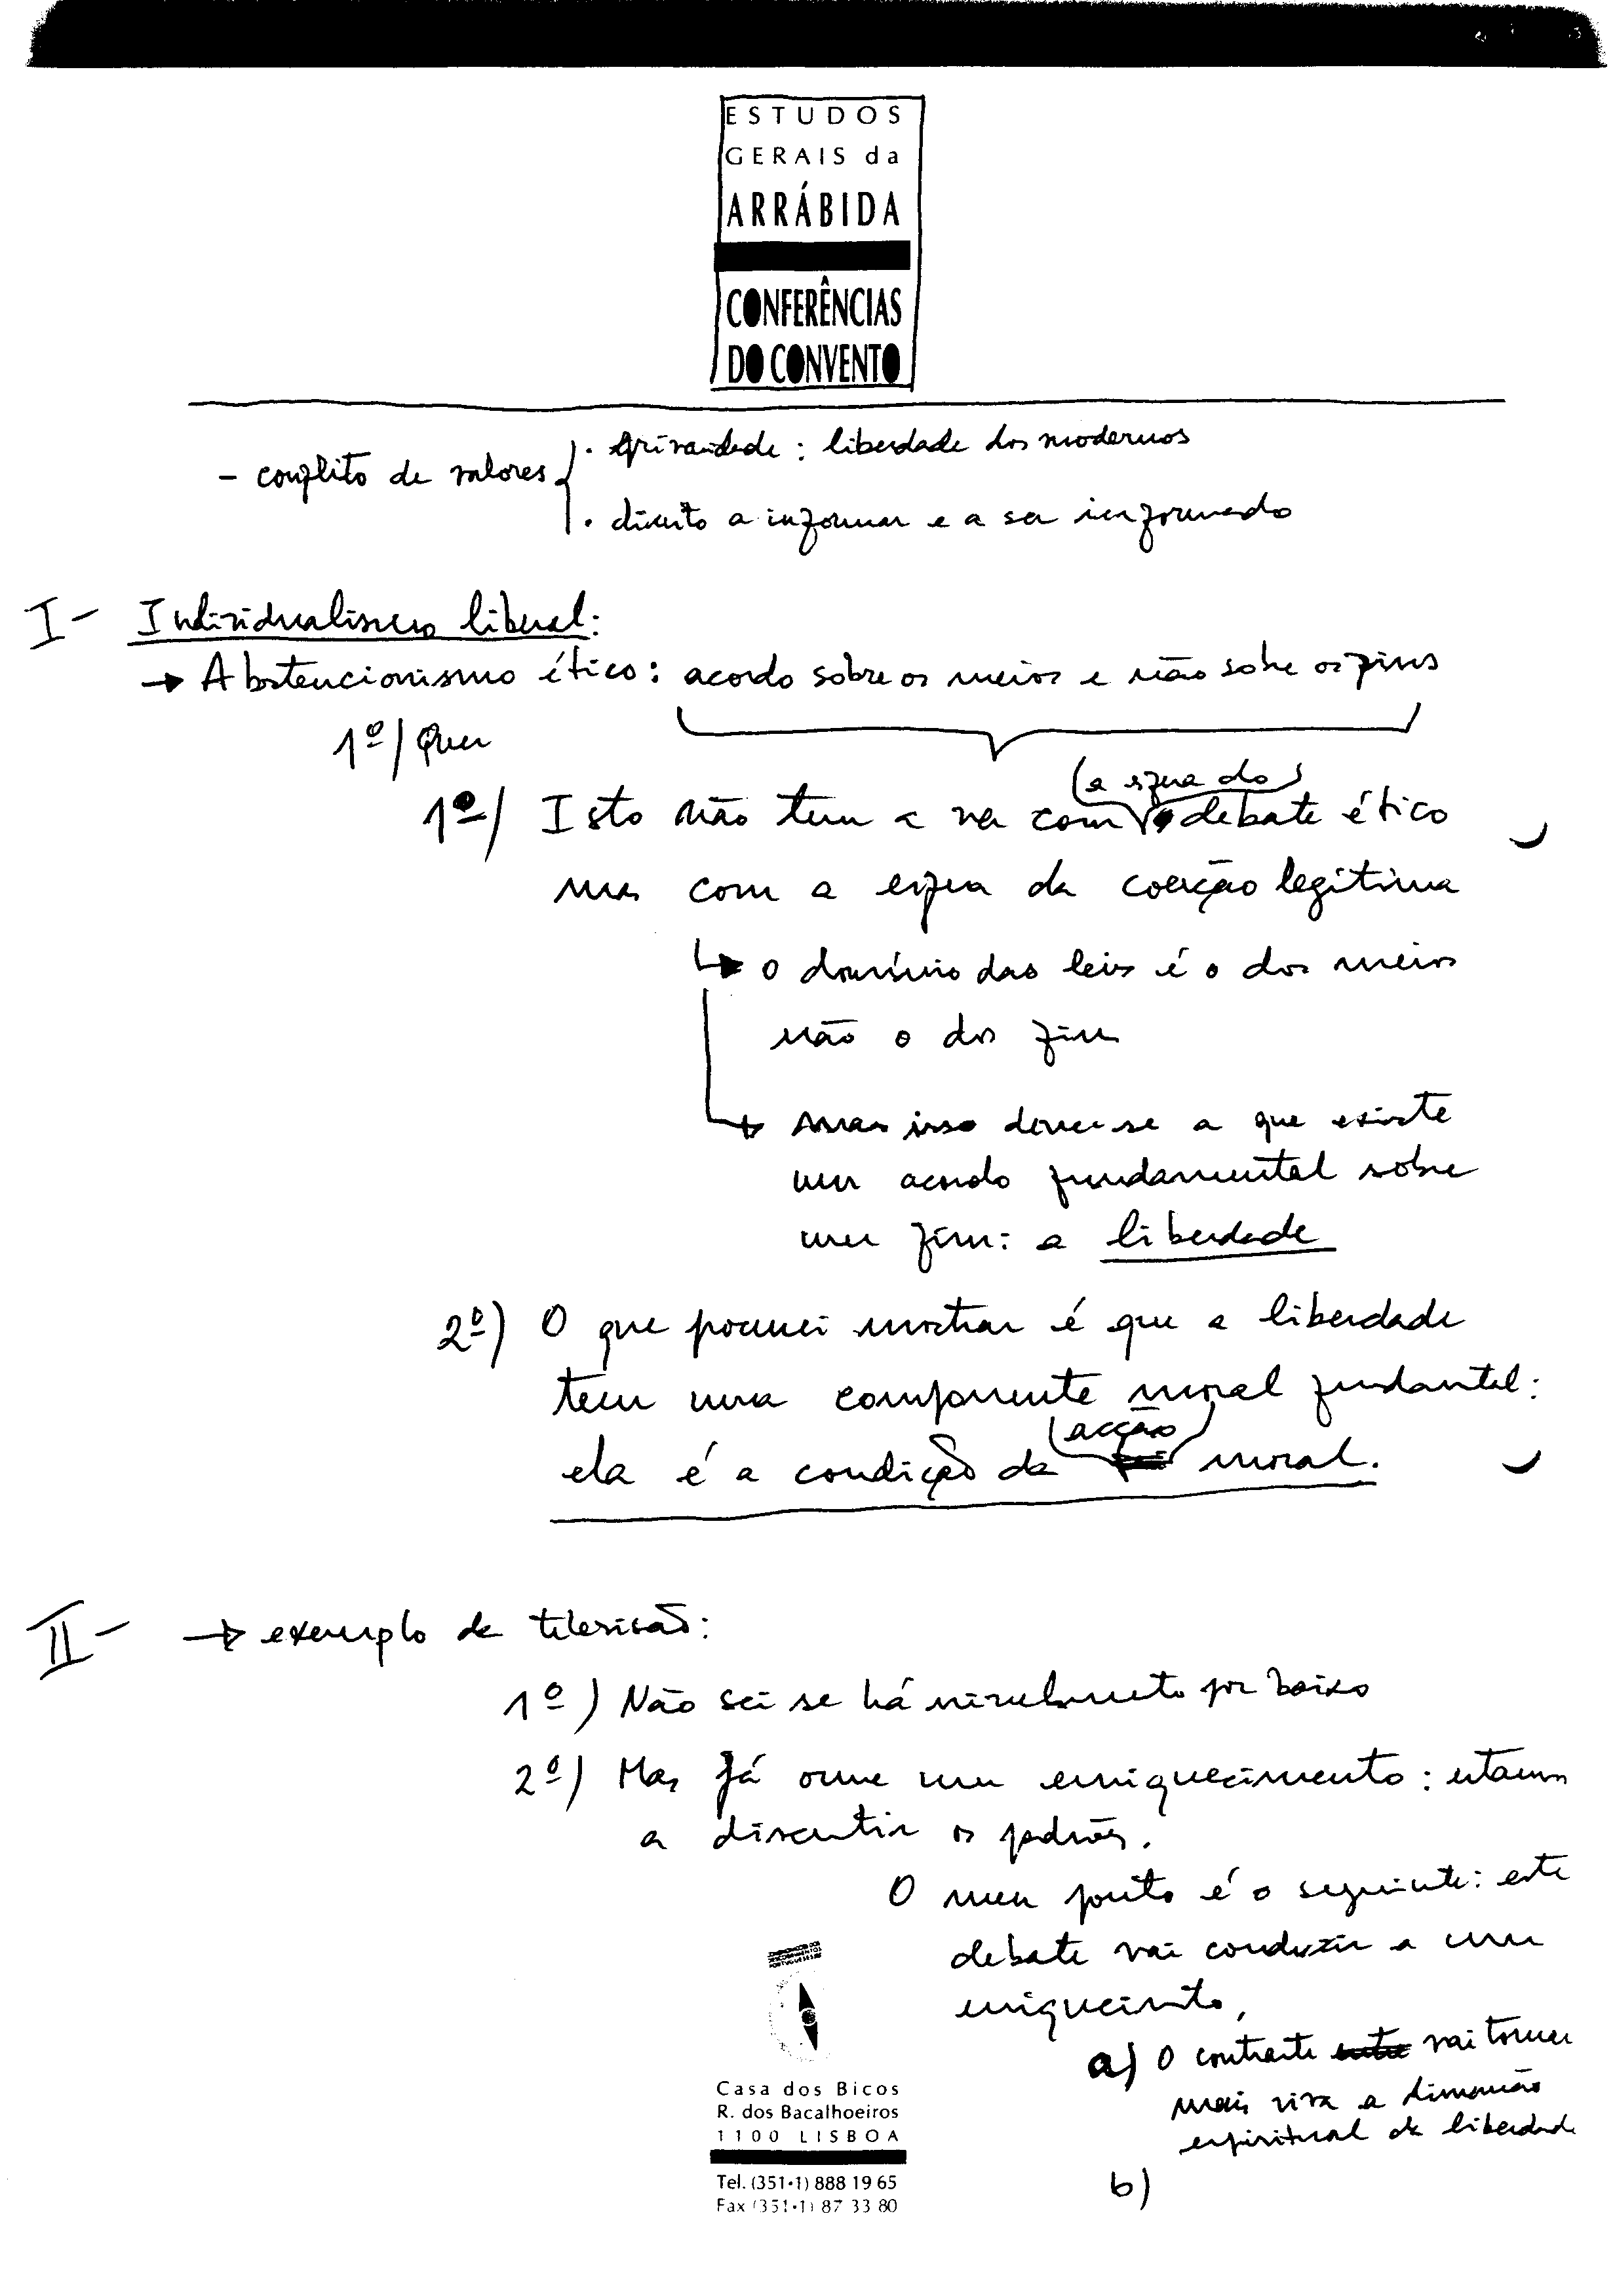 ESTUDOS
GERAIS da
ARRÁBIDA
CONFERÊNCIAS
DO CONVENTO
- conflito de valores
. privacidade : liberdade dos modernos
. direito a informar e a ser informado
I - Individualismo liberal:
→ Abstencionismo ético: acordo sobre os meios e não sobre os fins
1º/ Quer
(a esfera do)
1º/ Isto não tem a ver com debate ético
mas com a esfera da coerção legítima
↳ o domínio das leis é o dos meios
não o dos fins
↳ mas isso deve-se a que existe
um acordo fundamental sobre
um fim: a liberdade
2º) O que procurei mostrar é que a liberdade
tem uma componente moral fundamental:
(acção)
ela é a condição da moral.
II - → exemplo da televisão:
1º) Não sei se há nivelamento por baixo
2º) Mas já houve um enriquecimento : estamos
a discutir os padrões.
O meu ponto é o seguinte: este
debate vai conduzir a um
enriquecimento,
a) O contraste vai tornar
mais viva a dimensão
espiritual da liberdade
b)
Casa dos Bicos
R. dos Bacalhoeiros
1100 LISBOA
Tel. (351•1) 888 19 65
Fax (351•1) 87 33 80